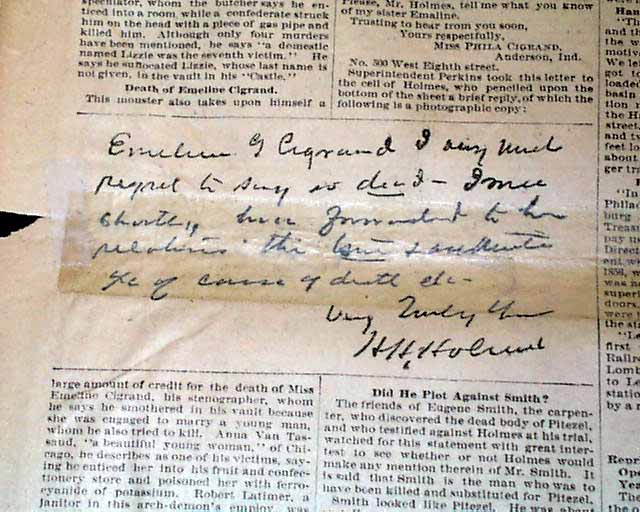 speculator, whom the butcher says he en-
ticed into a room, while a confederate struck
him on the head with a piece of gas pipe and
killed him. Although only four murders
have been mentioned, he says "a domestic
named Lizzie was the seventh victim." He
says he suffocated Lizzie, whose last name is
not given, in the vault in his "Castle."
Death of Emeline Cigrand.
This monster also takes upon himself a
Please, Mr. Holmes, tell me what you know
of my sister Emaline.
Trusting to hear from you soon,
Yours respectfully,
MISS PHILA CIGRAND,
Anderson, Ind.
No. 500 West Eighth street.
Superintendent Perkins took this letter to
the cell of Holmes, who penciled upon the
bottom of the sheet a brief reply, of which the
following is a photographic copy:
Emeline G Cigrand I very much
regret to say is dead - I
shortly have forwarded to her
relatives the
&c of cause of death &c-
Very Truly Yours
H H Holmes
large amount of credit for the death of Miss
Emeline Cigrand, his stenographer, whom
he says he smothered in his vault because
she was engaged to marry a young man,
whom he also tried to kill. Anna Van Tas-
sand, "a beautiful young woman," of Chi-
cago, he describes as one of his victims, say-
ing he enticed her into his fruit and confec-
tionery store and poisoned her with ferro-
cyanide of potassium. Robert Latimer, a
janitor in this arch-demon's employ, was
Did He Plot Against Smith?
The friends of Eugene Smith, the carpen-
ter, who discovered the dead body of Pitezel,
and who testified against Holmes at his trial,
watched for this statement with great inter-
est to see whether or not Holmes would
make any mention therein of Mr. Smith. It
is said that Smith is the man who was to
have been killed and substituted for Pitezel.
Smith looked like Pitezel. He was about